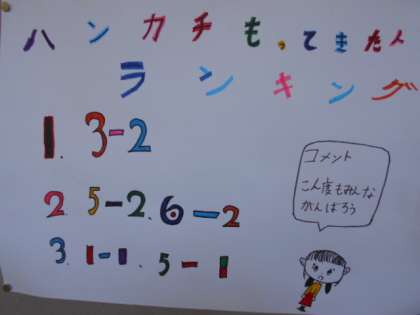 ハンカチもってきた人
ランキング
1. 3-2
2. 5-2. 6-2
3. 1-1. 5-1
コメント
こん度もみんな
がんばろう